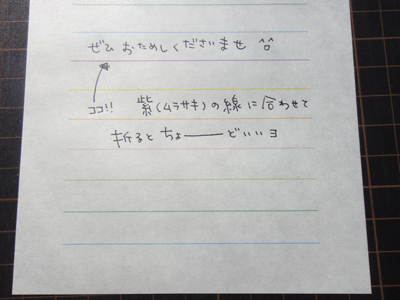 ぜひ おためしくださいませ ^^
ココ!! 紫(ムラサキ)の線に合わせて
折ると ちょ――どいい ヨ